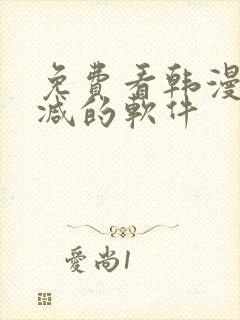 免費看韩漫
减的軟件
愛尚1